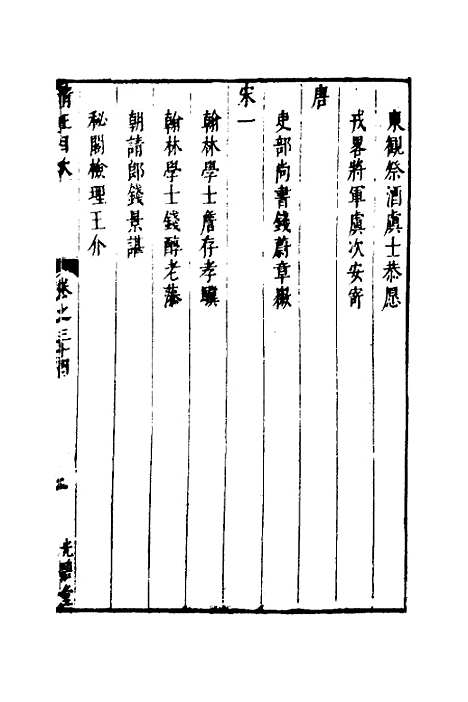 東觀祭酒虞士恭愿
戎畧將軍虞次安寄
唐
吏部尚書錢蔚章徽
宋一
翰林學士詹存孝驥
翰林學士錢醇老藻
朝請郎錢景諶
秘閣檢理王介
卷之三十四